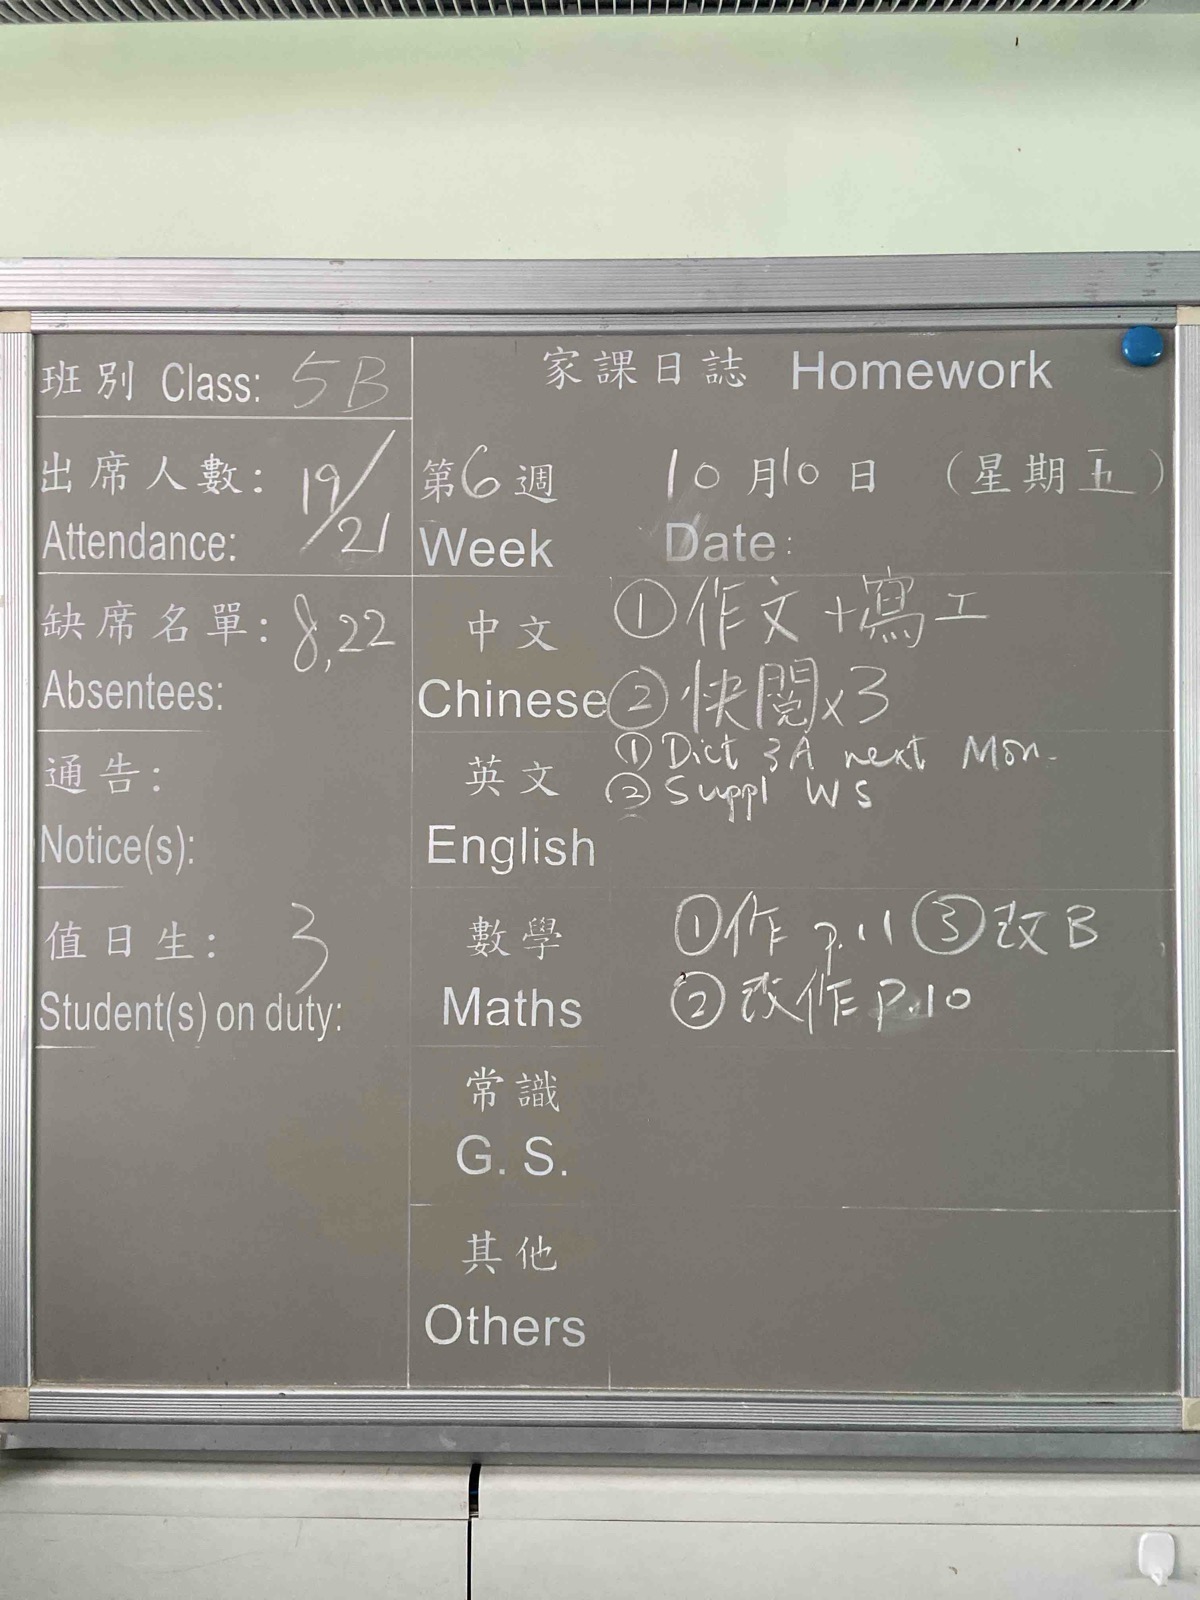 班別 Class: 5B
出席人數: 19/21
Attendance:
缺席名單: 8,22
Absentees:
通告:
Notice(s):
值日生: 3
Student(s) on duty:
家課日誌 Homework
第6週 10月10日 (星期五)
Week Date:
中文 ①作文+寫工
Chinese ②快閱x3
① Dict 3A next Mon.
英文 ② Suppl WS
English
數學 ①作 p.11 ③改B
Maths ②改作 P.10
常識
G. S.
其他
Others